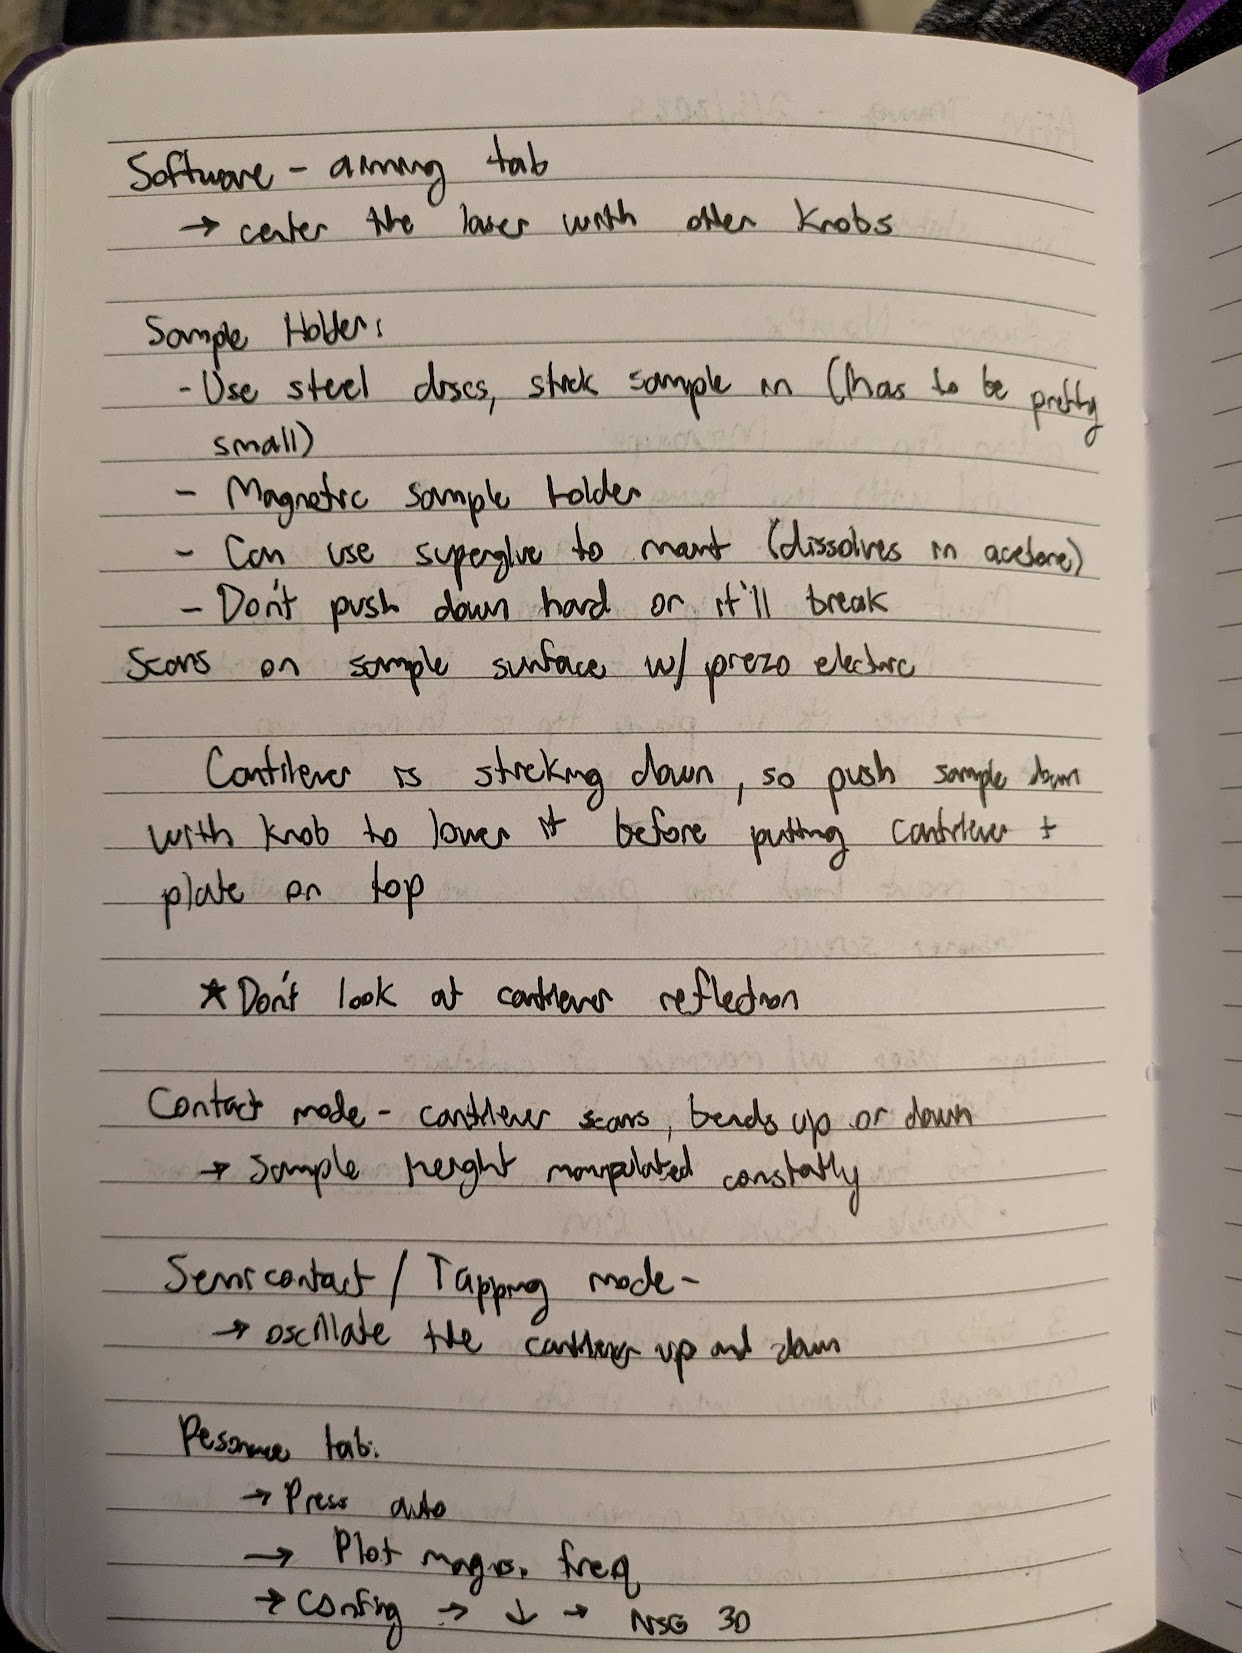 Software - aiming tab
→ center the laser with other knobs
Sample Holder:
- Use steel discs, stick sample in (has to be pretty
small)
- Magnetic sample holder
- Can use superglue to mount (dissolves in acetone)
- Don't push down hard or it'll break
Scans on sample surface w/ piezo electric
Cantilever is sticking down, so push sample down
with knob to lower it before putting cantilever +
plate on top
★ Don't look at cantilever reflection
Contact mode - cantilever scans, bends up or down
→ sample height manipulated constatly
Semicontact / Tapping mode -
→ oscillate the cantilever up and down
Resonance tab:
→ Press auto
→ Plot mag vs. freq
→ Config → ↓ → NSG 30